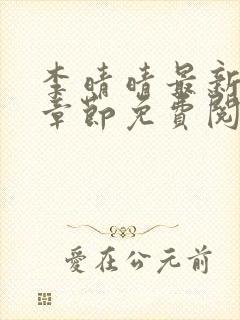 李晴晴最新
章節免費閱
愛在公元前